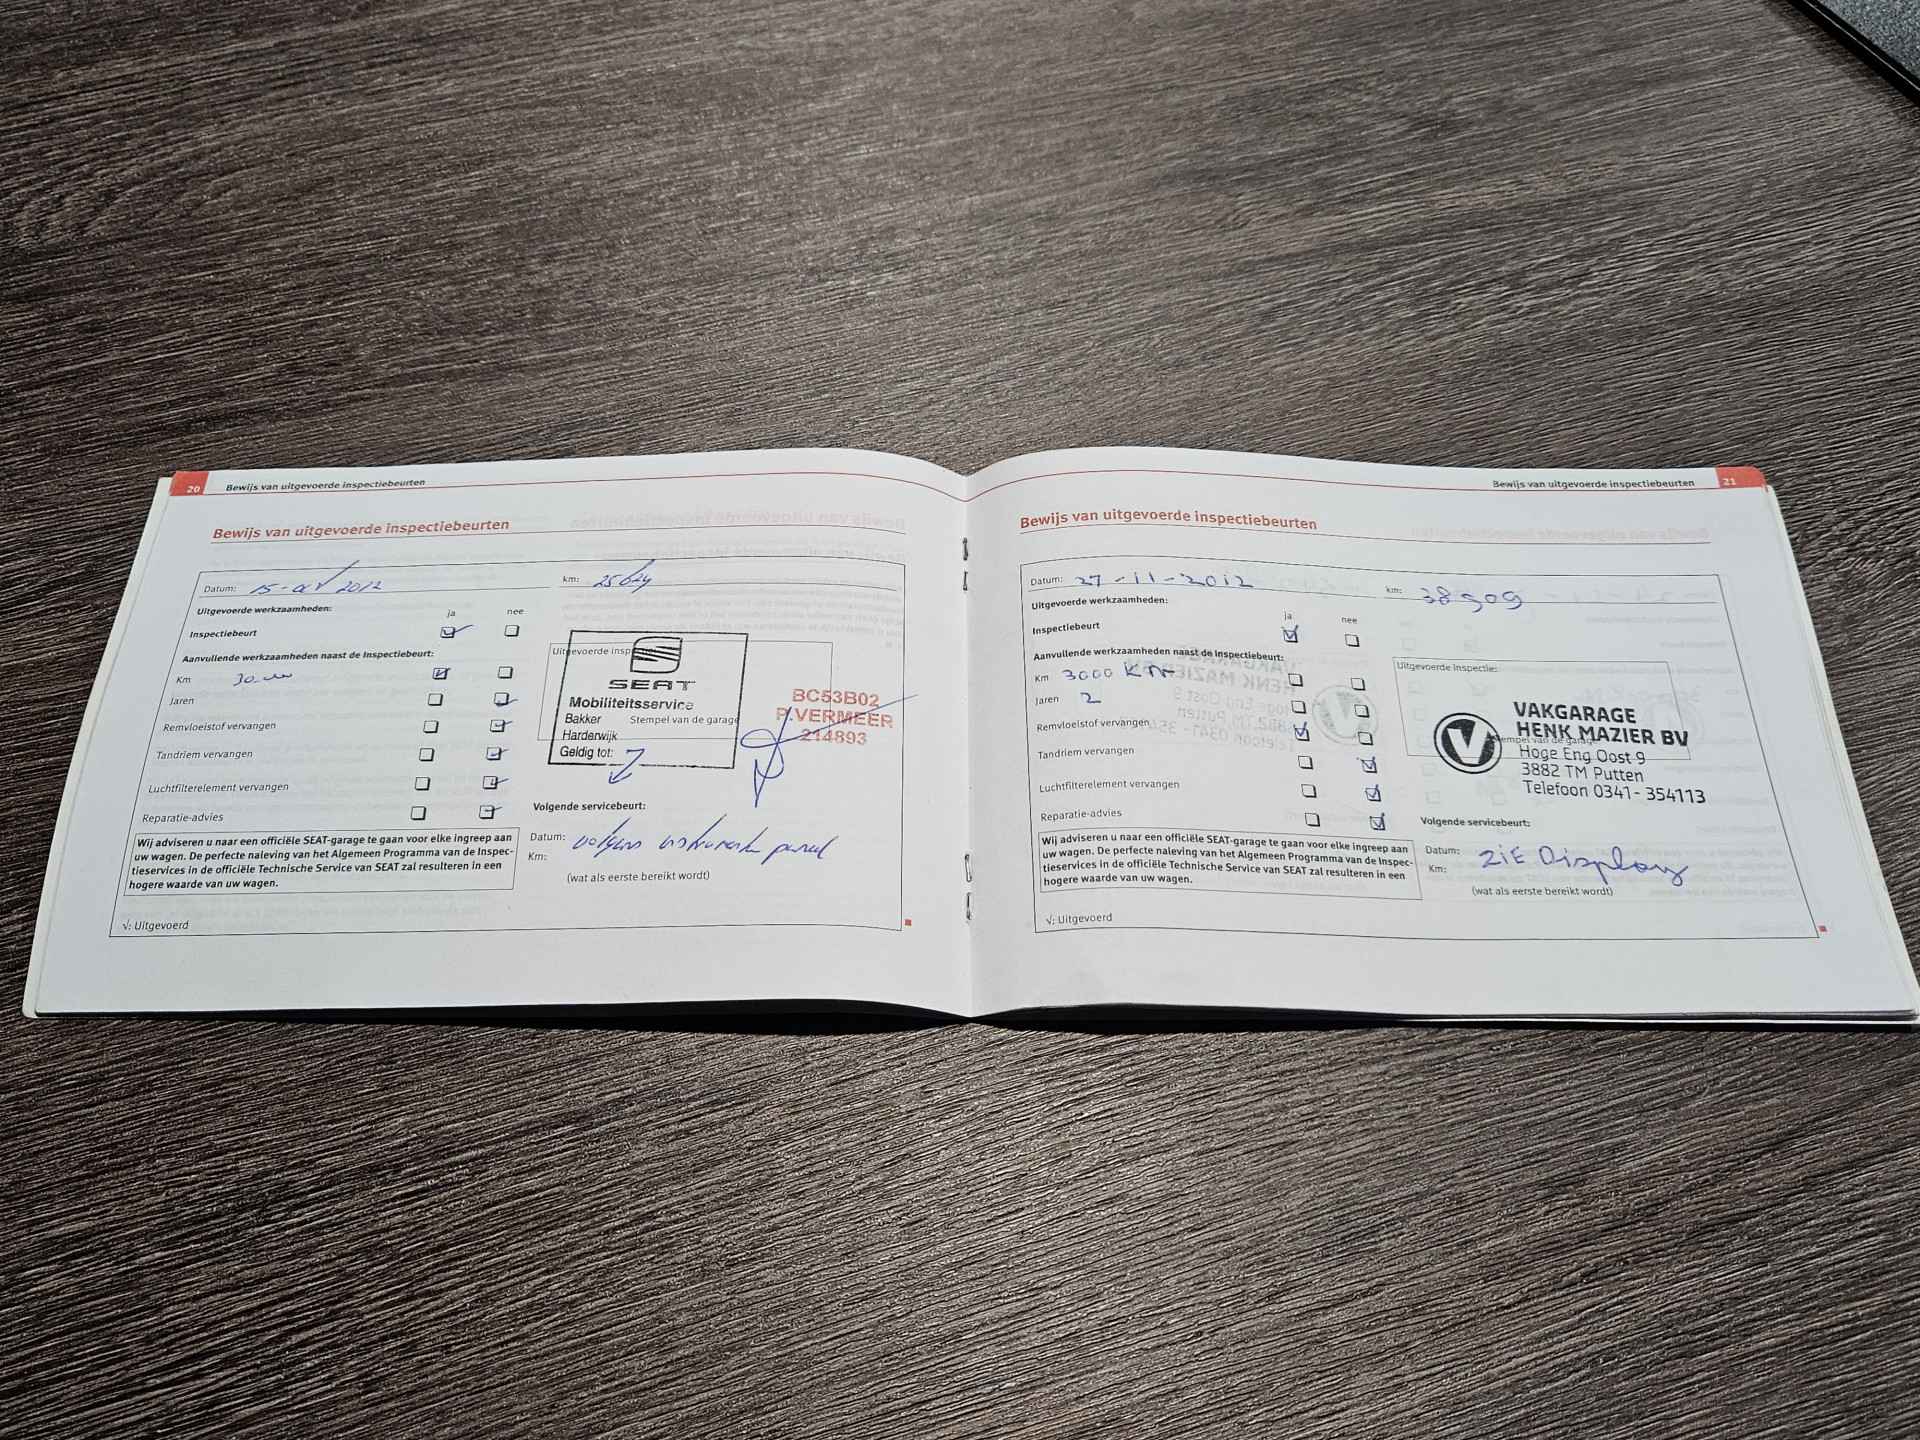 20 Bewijs van uitgevoerde inspectiebeurten
Bewijs van uitgevoerde inspectiebeurten
Datum: 15-oct 2012 km: 25624
Uitgevoerde werkzaamheden: ja nee
Inspectiebeurt
Aanvullende werkzaamheden naast de Inspectiebeurt:
Km
Jaren
Remvloeistof vervangen
Tandriem vervangen
Luchtfilterelement vervangen
Reparatie-advies
Wij adviseren u naar een officiële SEAT-garage te gaan voor elke ingreep aan
uw wagen. De perfecte naleving van het Algemeen Programma van de Inspec-
tieservices in de officiële Technische Service van SEAT zal resulteren in een
hogere waarde van uw wagen.
√: Uitgevoerd
Uitgevoerde inspectie:
SEAT
Mobiliteitsservice
Bakker
Harderwijk
Geldig tot:
Stempel van de garage
BC53B02
P.VERMEER
214893
Volgende servicebeurt:
Datum: volgens instrumenten paneel
Km:
(wat als eerste bereikt wordt)
Bewijs van uitgevoerde inspectiebeurten 21
Bewijs van uitgevoerde inspectiebeurten
Datum: 27-11-2012 km: 38909
Uitgevoerde werkzaamheden: ja nee
Inspectiebeurt
Aanvullende werkzaamheden naast de Inspectiebeurt:
Km 3000 KM
Jaren 2
Remvloeistof vervangen
Tandriem vervangen
Luchtfilterelement vervangen
Reparatie-advies
Wij adviseren u naar een officiële SEAT-garage te gaan voor elke ingreep aan
uw wagen. De perfecte naleving van het Algemeen Programma van de Inspec-
tieservices in de officiële Technische Service van SEAT zal resulteren in een
hogere waarde van uw wagen.
√: Uitgevoerd
Uitgevoerde inspectie:
Stempel van de garage
VAKGARAGE
HENK MAZIER BV
Hoge Eng Oost 9
3882 TM Putten
Telefoon 0341-354113
Volgende servicebeurt:
Datum: ZiE Display
Km:
(wat als eerste bereikt wordt)